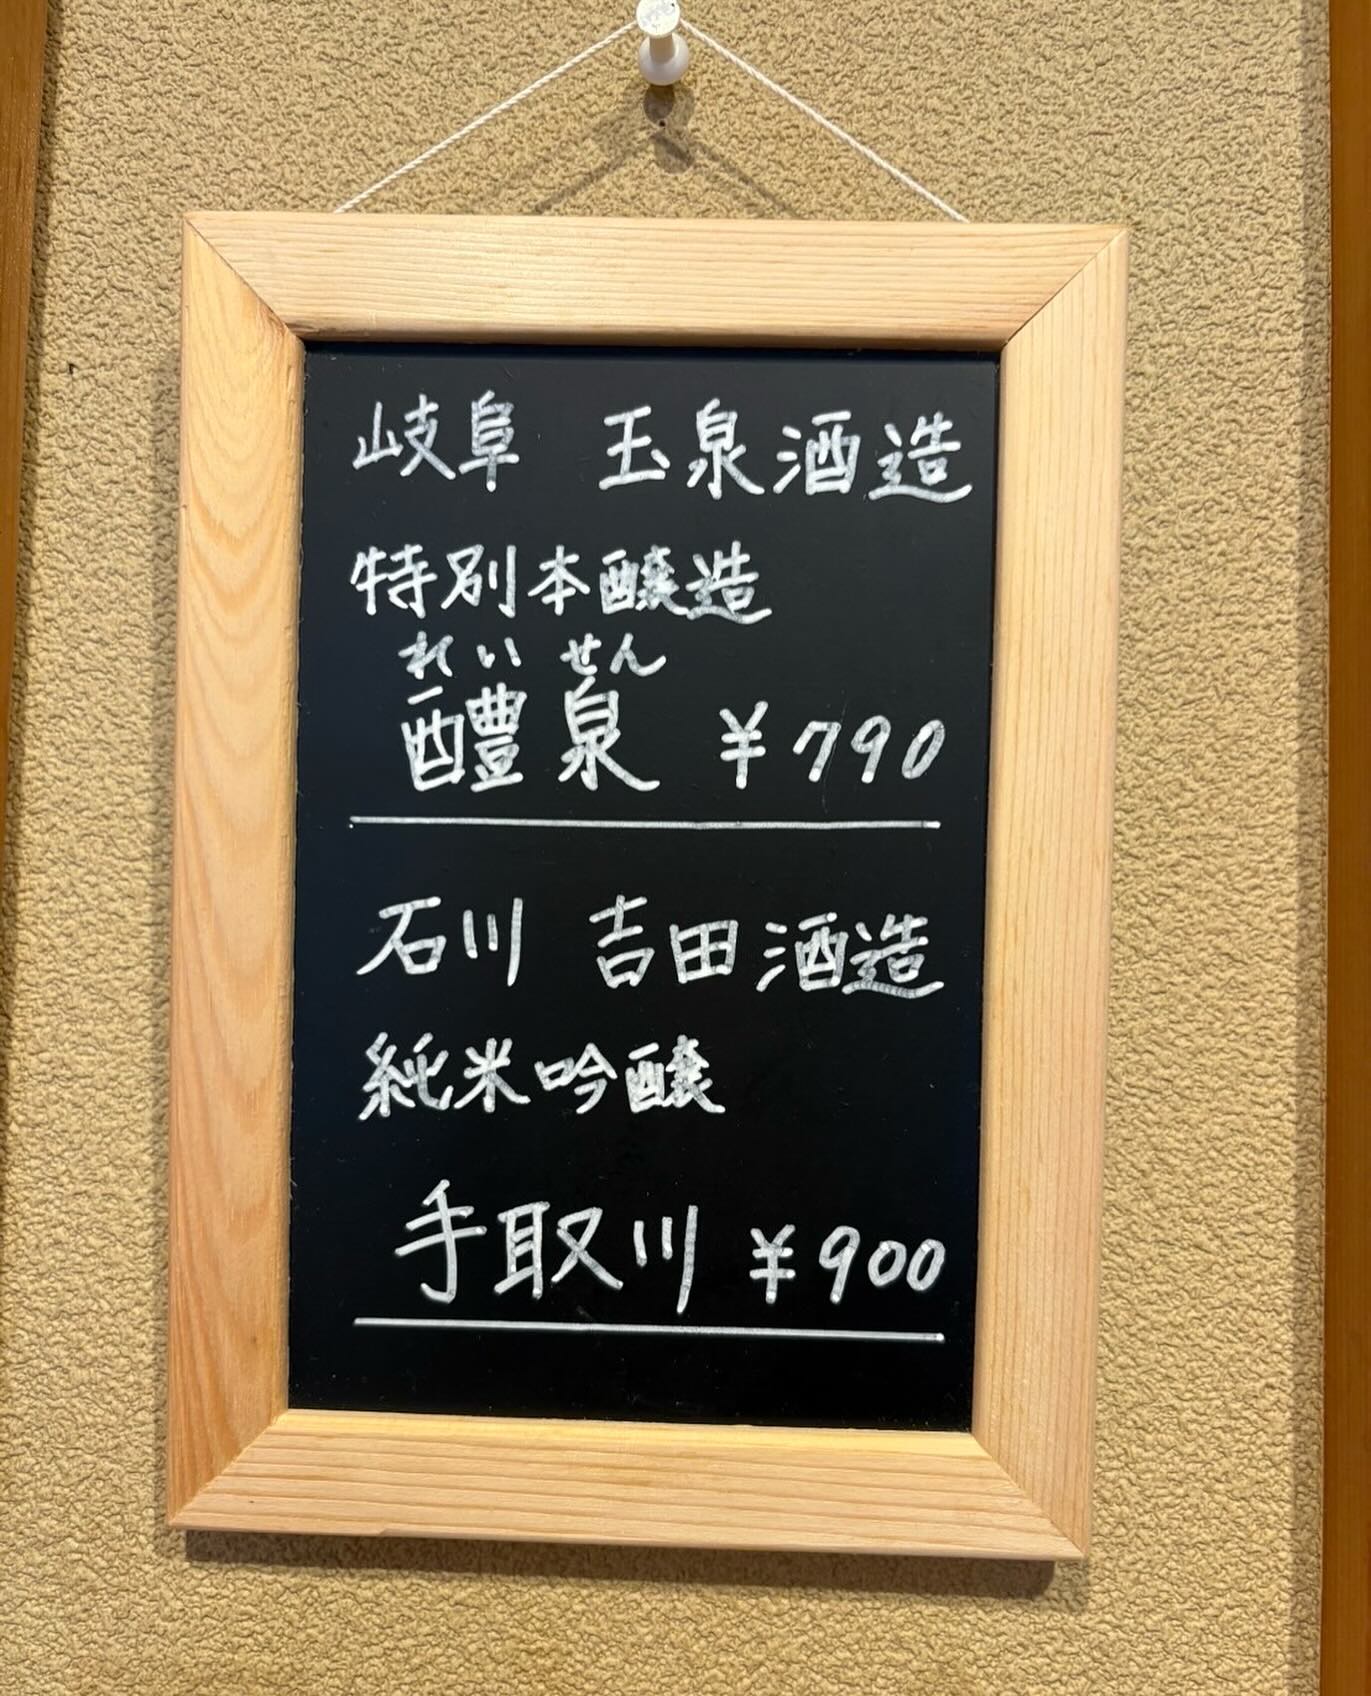 岐阜 玉泉酒造
特別本醸造
れいせん
醴泉 ¥790
石川 吉田酒造
純米吟醸
手取川 ¥900